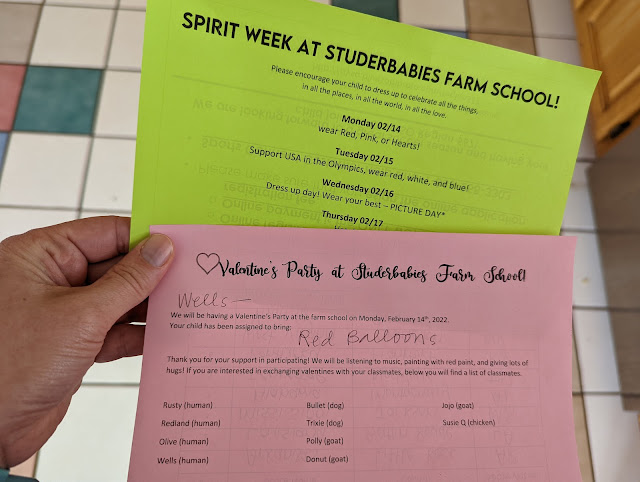 SPIRIT WEEK AT STUDERBABIES FARM SCHOOL!
Please encourage your child to dress up to celebrate all the things,
in all the places, in all the world, in all the love.
Monday 02/14
wear Red, Pink, or Hearts!
Tuesday 02/15
Support USA in the Olympics, wear red, white, and blue!
Wednesday 02/16
Dress up day! Wear your best – PICTURE DAY*
Thursday 02/17
Valentine's Party at Studerbabies Farm School!
Wells —
We will be having a Valentine's Party at the farm school on Monday, February 14th, 2022.
Your child has been assigned to bring:
Red Balloons
Thank you for your support in participating! We will be listening to music, painting with red paint, and giving lots of
hugs! If you are interested in exchanging valentines with your classmates, below you will find a list of classmates.
Rusty (human) Bullet (dog) Jojo (goat)
Redland (human) Trixie (dog) Susie Q (chicken)
Olive (human) Polly (goat)
Wells (human) Donut (goat)